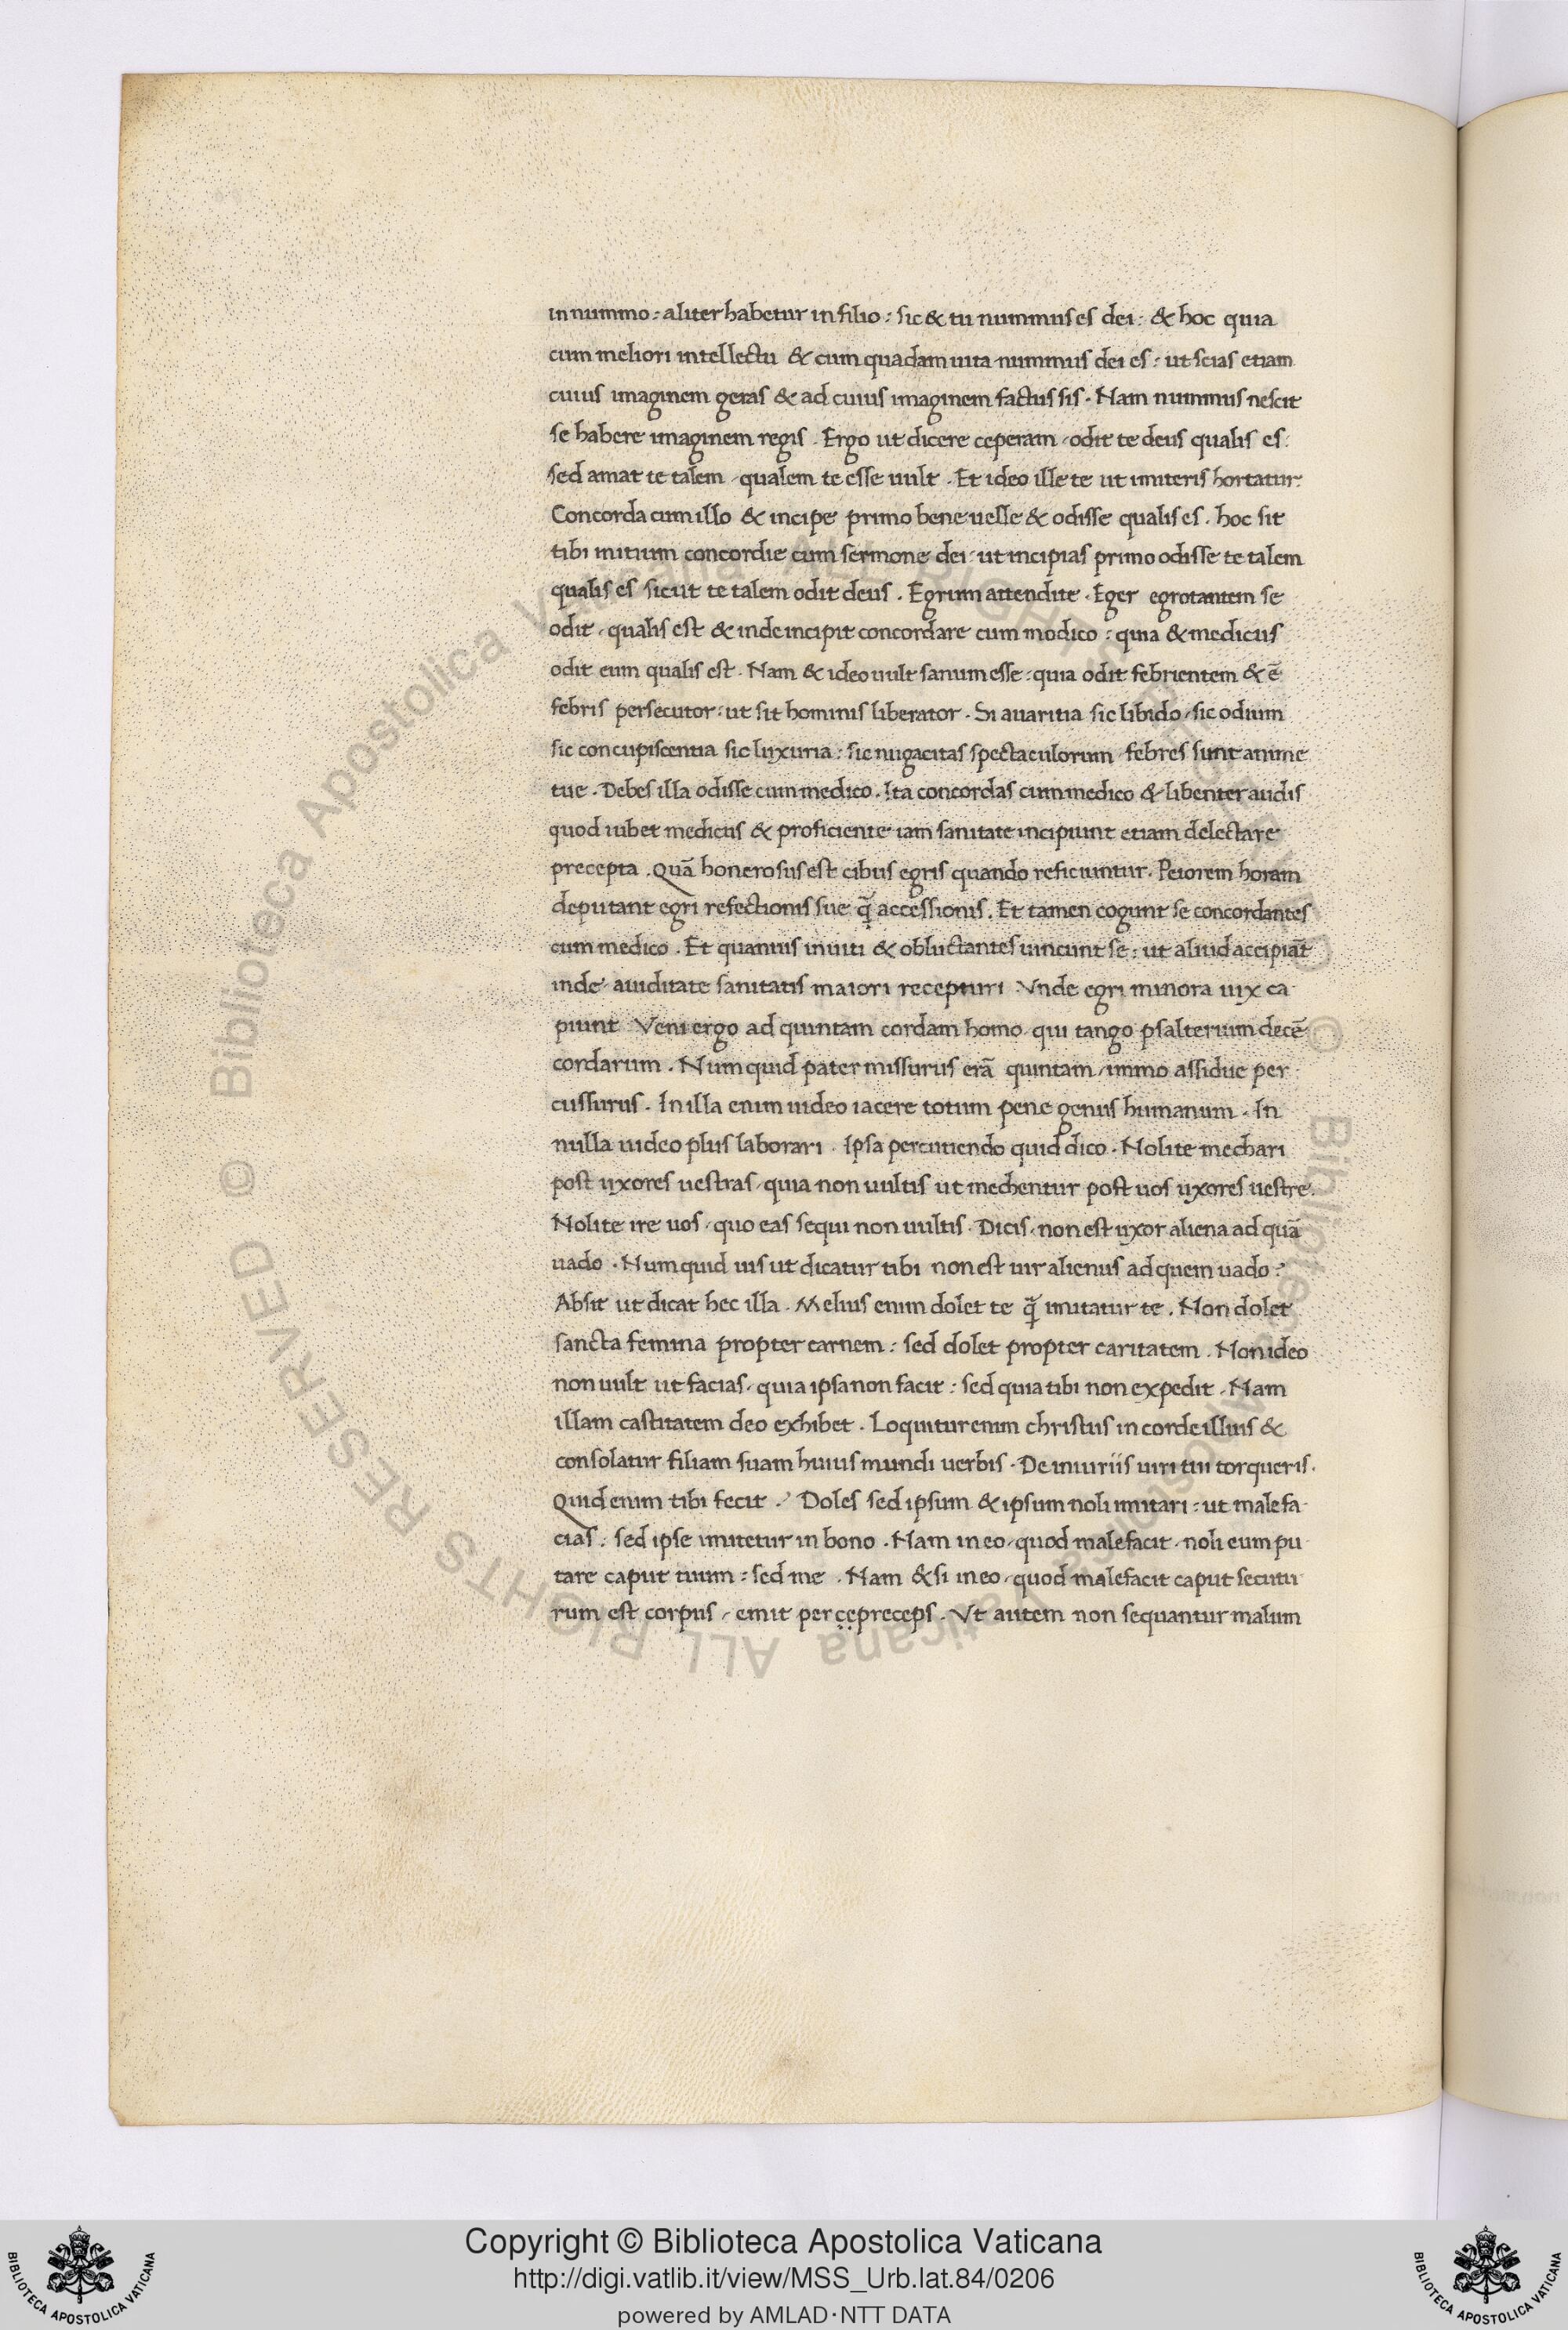 in nummo : aliter habetur in filio : sic & tu nummus es dei : & hoc quia
cum meliori intellectu & cum quadam uita nummus dei es : ut scias etiam
cuius imaginem geras & ad cuius imaginem factus sis . Nam nummus nescit
se habere imaginem regis . Ergo ut dicere ceperam / odit te deus qualis es :
sed amat te talem / qualem te esse uult . Et ideo ille te ut imiteris hortatur :
Concorda cum illo & incipe primo bene uelle & odisse qualis es . hoc sit
tibi initium concordie cum sermone dei / ut incipias primo odisse te talem
qualis es sicut te talem odit deus . Egrum attendite . Eger egrotantem se
odit / qualis est & inde incipit concordare cum modico : quia & medicus
odit eum qualis est . Nam & ideo uult sanum esse : quia odit febrientem & ē
febris persecutor : ut sit hominis liberator . Si auaritia sic libido / sic odium
sic concupiscentia sic luxuria : sic nugacitas spectaculorum / febres sunt anime
tue . Debes illa odisse cum medico . Ita concordas cum medico & libenter audis
quod iubet medicus & proficiente iam sanitate incipiunt etiam delectare
precepta . Quā honerosus est cibus egris quando reficiuntur . Peiorem horam
deputant egri refectionis sue q̄ accessionis . Et tamen cogunt se concordantes
cum medico . Et quamuis inuiti & obluctantes uincunt se : ut aliud accipiāt
inde / auiditate sanitatis maiori recepturi . Vnde egri minora uix ca
piunt . Veni ergo ad quintam cordam homo qui tango psalterium decē
cordarum . Numquid pater missurus erā quintam / immo assidue per
cussurus . In illa enim uideo iacere totum pene genus humanum . In
nulla uideo plus laborari . Ipsa percutiendo quid dico . Nolite mechari
post uxores uestras / quia non uultis ut mechentur post uos uxores uestre .
Nolite ire uos / quo eas sequi non uultis . Dicis / non est uxor aliena ad quā
uado . Numquid uis ut dicatur tibi non est uir alienus ad quem uado ?
Absit ut dicat hec illa . Melius enim dolet te q̄ imitatur te . Non dolet
sancta femina propter carnem : sed dolet propter caritatem . Non ideo
non uult ut facias / quia ipsa non facit : sed quia tibi non expedit . Nam
illam castitatem deo exhibet . Loquitur enim christus in corde illius &
consolatur filiam suam huius mundi uerbis . De iniuriis uiri tui torqueris .
Quid enim tibi fecit ? Doles sed ipsum & ipsum noli imitari : ut male fa
cias : sed ipse imitetur in bono . Nam in eo / quod male facit / noli eum pu
tare caput tuum : sed me . Nam & si in eo / quod malefacit caput secutu
rum est corpus / emit per cepreceps . Vt autem non sequantur malum
Copyright © Biblioteca Apostolica Vaticana
http://digi.vatlib.it/view/MSS_Urb.lat.84/0206
powered by AMLAD·NTT DATA
BIBLIOTECA APOSTOLICA VATICANA
BIBLIOTECA APOSTOLICA VATICANA
© Biblioteca Apostolica Vaticana ALL RIGHTS RESERVED © Biblioteca Apostolica Vaticana ALL RIGHTS RESERVED